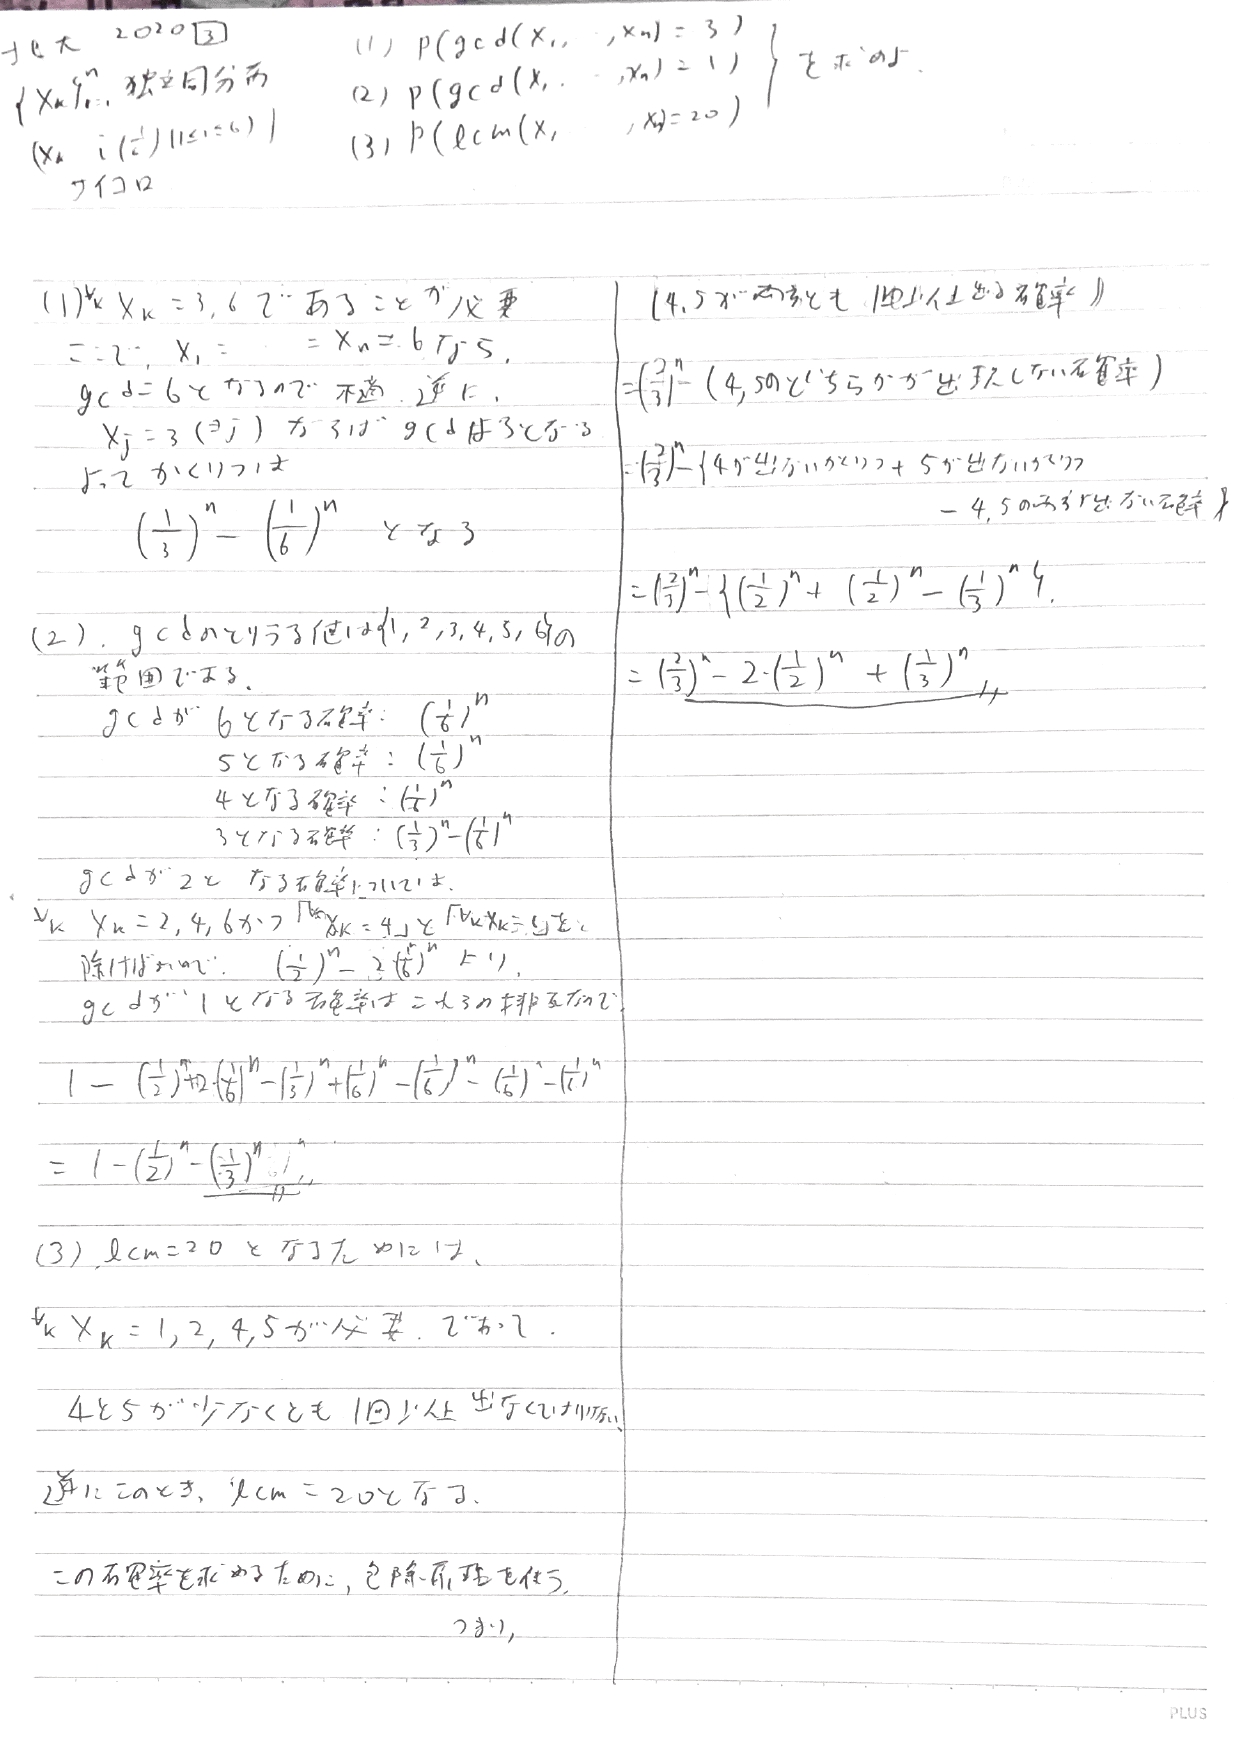 北大 2020 3
{Xk}ⁿ 独立同分布
(Xk i (1/6) (1≤i≤6))
サイコロ
(1) P(gcd(X₁, ,Xn) = 3)
(2) P(gcd(X₁ ,Xn) = 1)
(3) P(lcm(X₁ ,Xn)=20)
を求めよ.
(1) ∀k Xk = 3, 6 であることが必要
ここで, X₁ = = Xn = 6 なら,
gcd=6となるので不適. 逆に,
Xj = 3 (∃j) ならば gcdは3となる
よって かくりつは
(1/3)ⁿ - (1/6)ⁿ となる
(2). gcdのとりうる値は{1, 2, 3, 4, 5, 6}の
範囲である.
gcdが 6となる確率: (1/6)ⁿ
5となる確率: (1/6)ⁿ
4となる確率: (1/6)ⁿ
3となる確率: (1/3)ⁿ - (1/6)ⁿ
gcdが2と なる確率については.
∀k Xk = 2, 4, 6 かつ 「∀k Xk = 4」と「∀k Xk = 6」を
除けばよいので. (1/2)ⁿ - 2(1/6)ⁿ より,
gcdが1となる確率はこれらの排反なので
1 - (1/2)ⁿ + 2·(1/6)ⁿ - (1/3)ⁿ + (1/6)ⁿ - (1/6)ⁿ - (1/6)ⁿ - (1/6)ⁿ
= 1 - (1/2)ⁿ - (1/3)ⁿ
(3). lcm=20 となるためには、
∀k Xk = 1, 2, 4, 5 が必要. であって.
4と5が少なくとも 1回以上 出なくてはならない
逆にこのとき, lcm = 20となる.
この確率を求めるために, 包除原理を使う.
つまり,
(4, 5が両方とも 1回以上出る確率)
= (2/3)ⁿ - (4, 5のどちらかが出現しない確率)
= (2/3)ⁿ - {4が出ないかくりつ + 5が出ないかくりつ
- 4, 5の両方出ない確率}
= (2/3)ⁿ - {(1/2)ⁿ + (1/2)ⁿ - (1/3)ⁿ}.
= (2/3)ⁿ - 2·(1/2)ⁿ + (1/3)ⁿ
PLUS